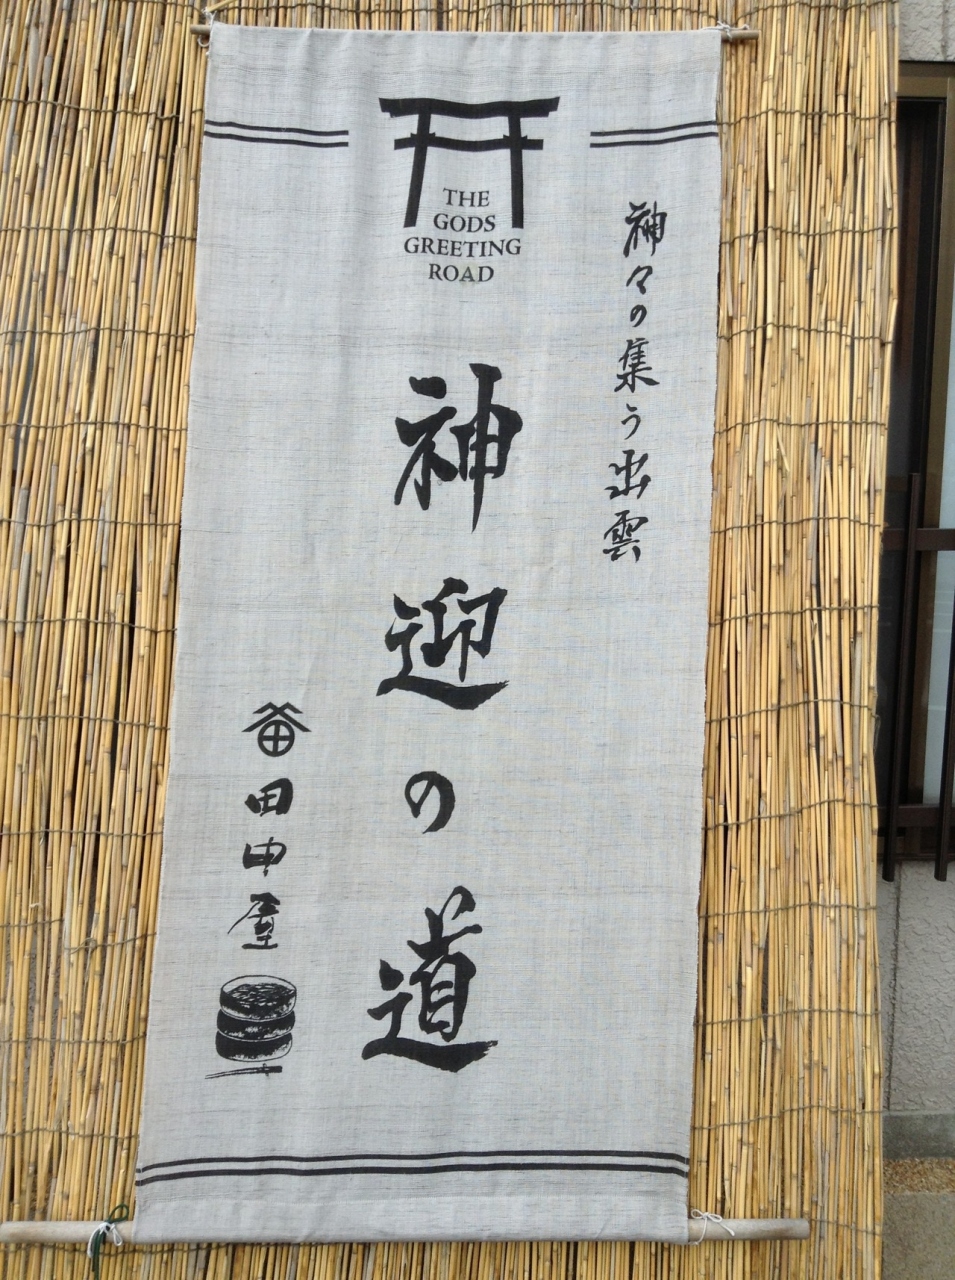 THE
GODS
GREETING
ROAD
神々の集う出雲
神迎の道
田中屋